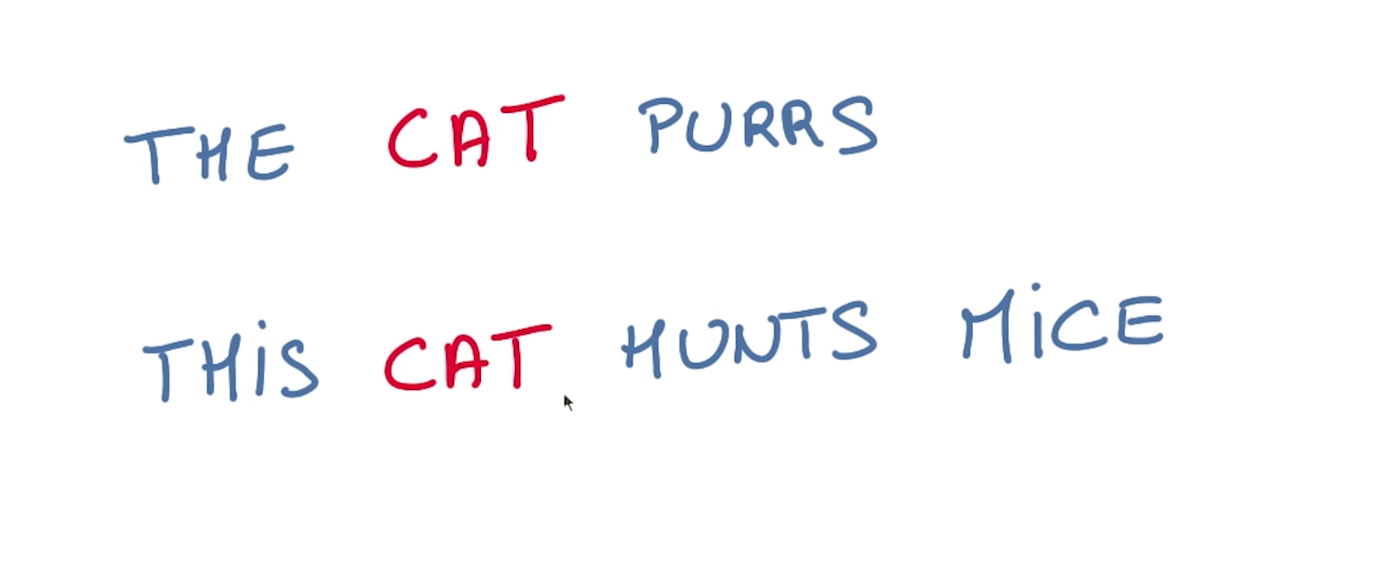 THE CAT PURRS
THiS CAT HUNTS MiCE